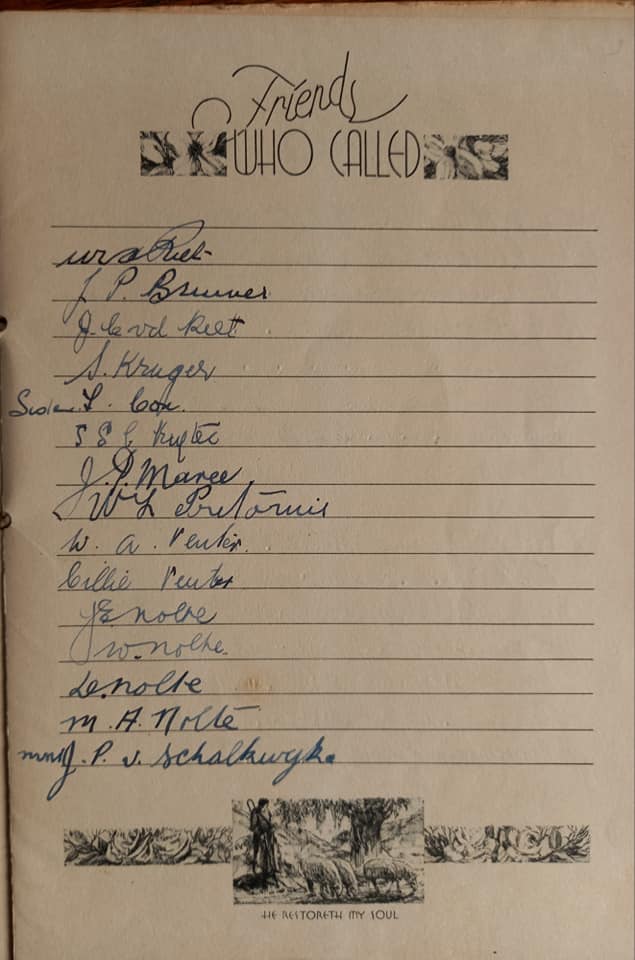 Friends
WHO CALLED
J P. Brunner
J. C vd Reet
S. Kruger
L. Cox.
S S C
J. P. Maree
W L Pretorius
W. A. Venter.
Cillie Venter
J E Nolte
J W. Nolte.
D. Nolte
M. A. Nolte
J. P. v. Schalkwyk.
HE RESTORETH MY SOUL